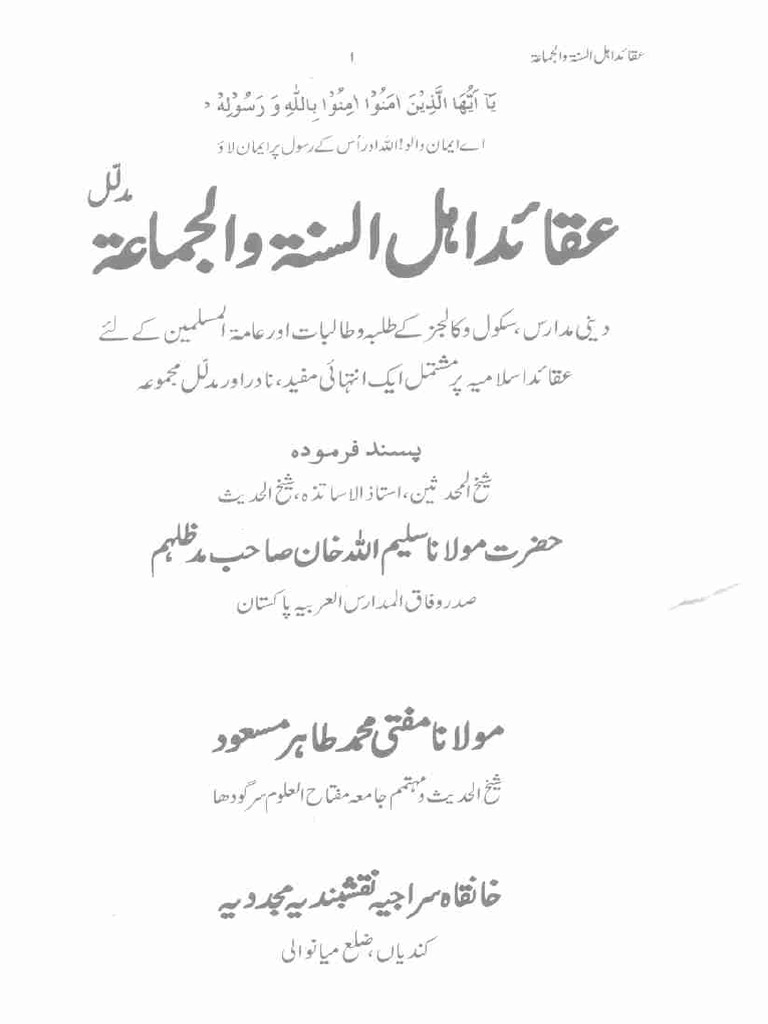 عقائد اہل السنۃ والجماعۃ
۱
یٰۤاَیُّهَا الَّذِیْنَ اٰمَنُوْۤا اٰمِنُوْا بِاللّٰهِ وَ رَسُوْلِهٖ
اے ایمان والو! اللہ اور اُس کے رسول پر ایمان لاؤ
مدلّل
عقائد اہل السنۃ والجماعۃ
دینی مدارس، سکول و کالجز کے طلبہ و طالبات اور عامۃ المسلمین کے لئے
عقائد اسلامیہ پر مشتمل ایک انتہائی مفید، نادر اور مدلّل مجموعہ
پسند فرمودہ
شیخ المحدثین، استاذ الاساتذہ، شیخ الحدیث
حضرت مولانا سلیم اللہ خان صاحب مدظلہم
صدر وفاق المدارس العربیہ پاکستان
مولانا مفتی محمد طاہر مسعود
شیخ الحدیث و مہتمم جامعہ مفتاح العلوم سرگودھا
خانقاہ سراجیہ نقشبندیہ مجددیہ
کندیاں، ضلع میانوالی